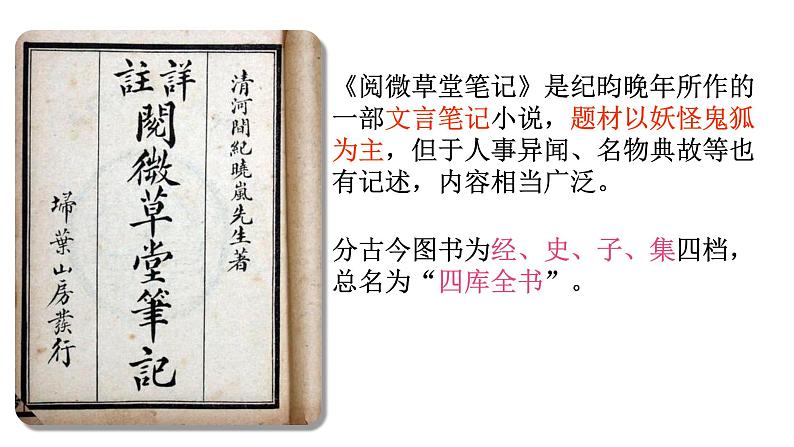 詳註
閱微草堂筆記
清河間紀曉嵐先生著
埽葉山房發行
《阅微草堂笔记》是纪昀晚年所作的
一部文言笔记小说，题材以妖怪鬼狐
为主，但于人事异闻、名物典故等也
有记述，内容相当广泛。
分古今图书为经、史、子、集四档，
总名为“四库全书”。